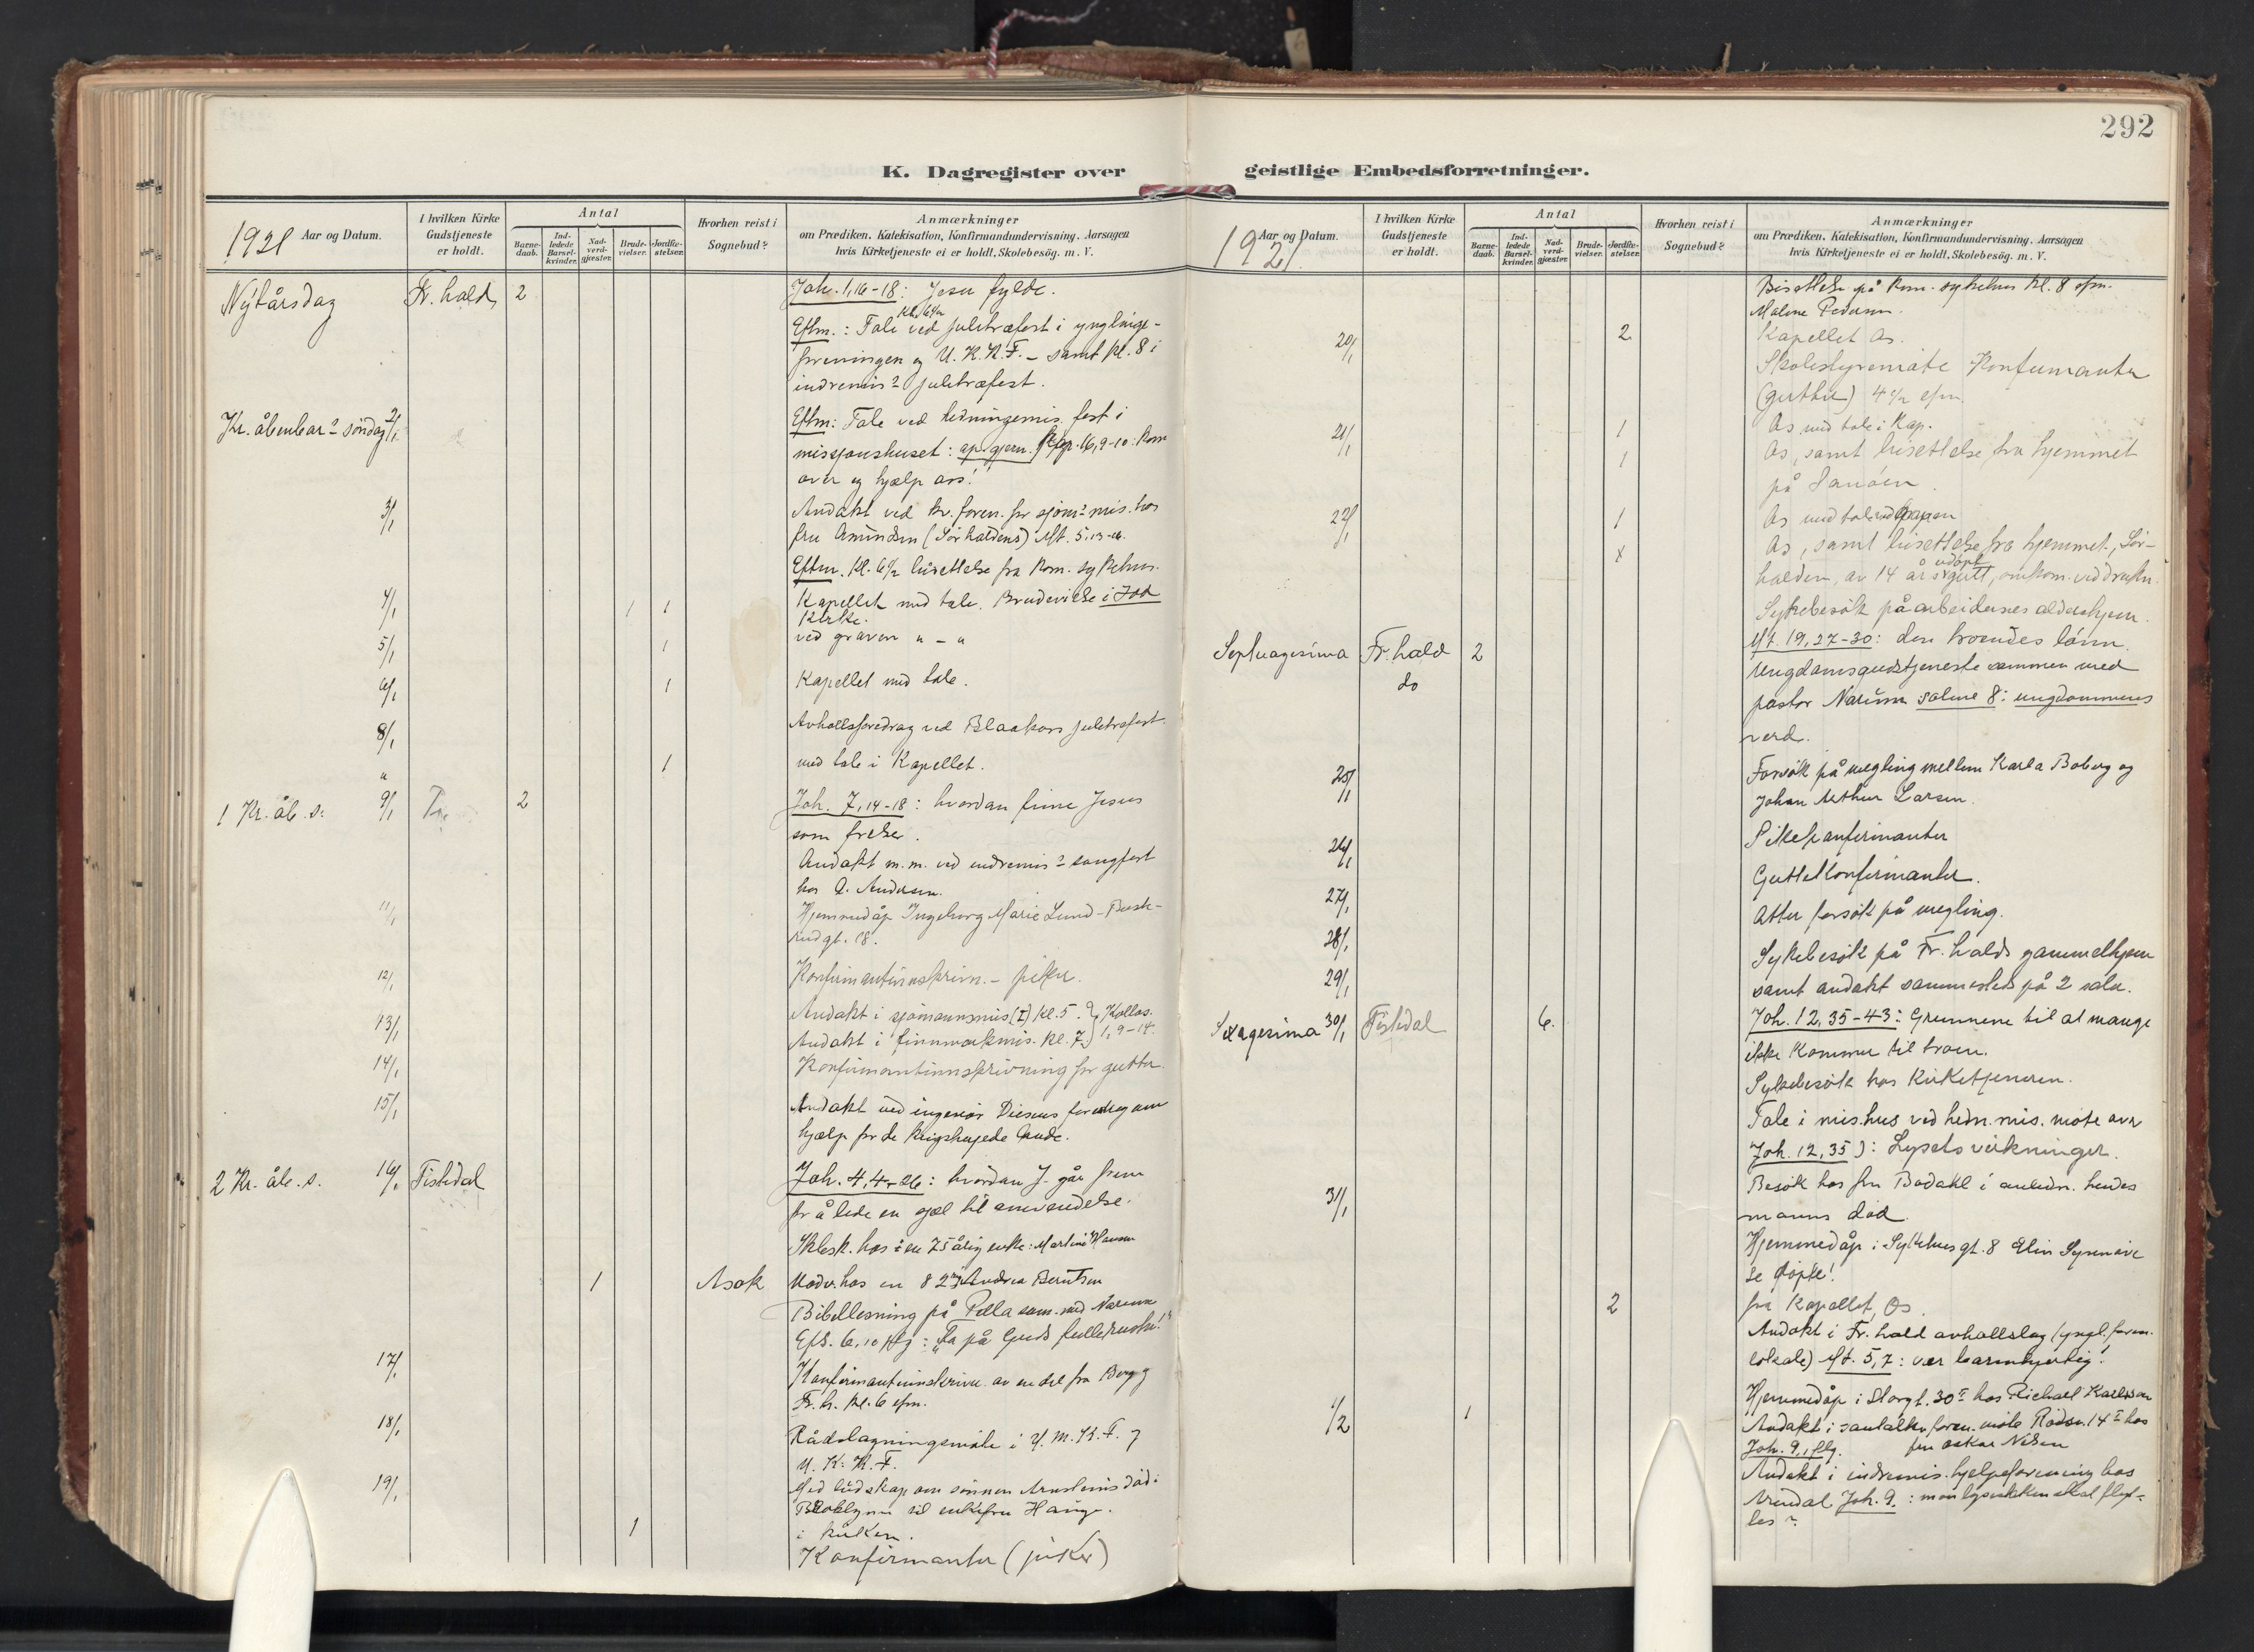 292
K. Dagregister over geistlige Embedsforretninger.
1921 Aar og Datum.
I hvilken Kirke Gudstjeneste er holdt.
Antal
Barne-daab.
Ind-ledede Barsel-kvinder.
Nad-verd-gjæster.
Brude-vielser.
Jordfæ-stelser.
Hvorhen reist i Sognebud?
Anmærkninger
om Prædiken, Katekisation, Konfirmandundervisning, Aarsagen
hvis Kirketjeneste ei er holdt, Skolebesög. m. V.
Nytårsdag Fr. hald, 2 Joh. 1,16-18: Jesu fylde.
Eftm.: Tale ved juletræfest i ynglinge-
foreningen og U. K. K. F. – samt kl. 8 i
indremis? juletræfest.
Kr. åbenbar? söndag 2/1 Eftm: Tale ved hedningemis. fest i
missjonshuset: ap. gjern. 16,9-10: Kom
over og hjælp oss!
3/1 Andakt ved kv. foren. for sjöm? mis. hos
fru Amundsen (Sörhaldens) Mt. 5,13-16.
Eftm. Kl. 6½ bisettelse fra Kom. sykehus.
4/1 1 1 Kapellet med tale. Brudevielse i
Kirke.
5/1 1 ved graven " – "
6/1 1 Kapellet med tale.
8/1 Avholdsforedrag ved Blaakors juletrefest.
" 1 med tale i Kapellet.
1 Kr. åb. s. 9/1 Fr. 2 Joh. 7,14-18: hvordan finne Jesus
som frelser.
Andakt m. m. ved indremis? sangfest
hos A. Andersen.
11/1 Hjemmedåp Ingeborg Marie Lund – Busk-
rudgt. 18.
12/1 Konfirmantinnskrivn. – piker.
13/1 Andakt i sjömannsmis (I) Kl. 5. Kollos.
Andakt i finnmarkmis. Kl. 7. 1, 9-14.
14/1 Konfirmantinnskrivning for gutter.
15/1 Andakt ved ingeniör Diesens foredrag om
hjælp for de krigsherjede lande.
2 Kr. åb. s. 16/1 Tistedal Joh. 4,4-26: hvordan J. går frem
for å lede en sjæl til omvendelse.
hos en 75 årig enke: Martine Hansen
1 Asak Nadv. hos en 82 Andrea Berntsen
Bibellesning på Pella sam. med Narum
Efs. 6,10 flg: "Ta på Guds fulle rustn!"
17/1 Konfirmantinnskrivn. av en del fra Berg og
Fr. h. Kl. 6 efm.
18/1 Rådslagningsmöte i Y. M. K. F. og
U. K. K. F.
19/1 Med budskap om sönnen Arnsteins död:
til enkefru Hauge.
1 i kirken.
Konfirmanter (piker)
1921. Aar og Datum.
I hvilken Kirke Gudstjeneste er holdt.
Antal
Barne-daab.
Ind-ledede Barsel-kvinder.
Nad-verd-gjæster.
Brude-vielser.
Jordfæ-stelser.
Hvorhen reist i Sognebud?
Anmærkninger
om Prædiken, Katekisation, Konfirmandundervisning, Aarsagen
hvis Kirketjeneste ei er holdt, Skolebesög. m. V.
Bisettelse på Kom. sykehus kl. 8 efm.
Malene Pedersen.
20/1 2 Kapellet Os.
Skolestyremöte Konfirmanter
(gutter) 4½ efm.
21/1 1 Os med tale i Kap.
1 Os, samt bisettelse fra hjemmet
på
22/1 1 Os med tale ved graven
x Os, samt bisettelse fra hjemmet, Sör-
halden, av 14 års udöpt gutt, omkom. ved drukn.
Sykebesök på arbeidernes aldershjem.
Septuagesima Fr. hald 2 Mt. 19,27-30: den troendes lönn.
do Ungdomsgudstjeneste sammen med
pastor Narum salme 8: ungdommens
verd.
25/1 Forsök på megling mellem Karla Boberg og
Johan Arthur Larsen.
26/1 Pikekonfirmanter
27/1 Guttekonfirmanter.
28/1 Atter forsök på megling.
29/1 Sykebesök på Fr. halds gammelhjem
samt andakt sammesteds på 2 saler.
Sexagesima 30/1 Tistedal 6. Joh. 12, 35-43: Grunnene til at mange
ikke kommer til troen.
Sykebesök hos Kirketjeneren.
Tale i mis.hus ved hedn. mis. möte over
Joh. 12,35): Lysets virkninger.
31/1 Besök hos fru Bodahl i anledn. hendes
manns död.
Hjemmedåp i Sykehusgt. 8 Elin
se döpte!
2 fra Kapellet, Os.
Andakt i Fr. hald avholdslag (yngl. foren.
lokale) Mt. 5,7: vær barmhjertig!
1/2 1 Hjemmedåp i Storgt. 30 II hos Richard Karlsson
Andakt i santalkv. foren. möte Rödsv. 14 I hos
Joh. 9,1 flg. fru Oskar Nilsen
Andakt i indremis. hjelpeforening hos
Arendal Joh. 9.: mon lysestaken skal flyt-
tes?